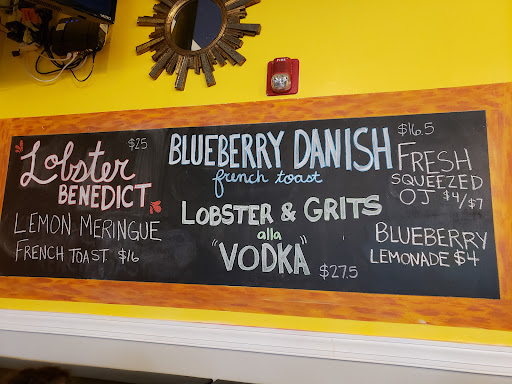 FIRE
Lobster $25
BENEDICT
LEMON MERINGUE
FRENCH TOAST $16
BLUEBERRY DANISH $16.5
french toast
LOBSTER & GRITS
alla
"VODKA" $27.5
FRESH
SQUEEZED
OJ $4/$7
BLUEBERRY
LEMONADE $4